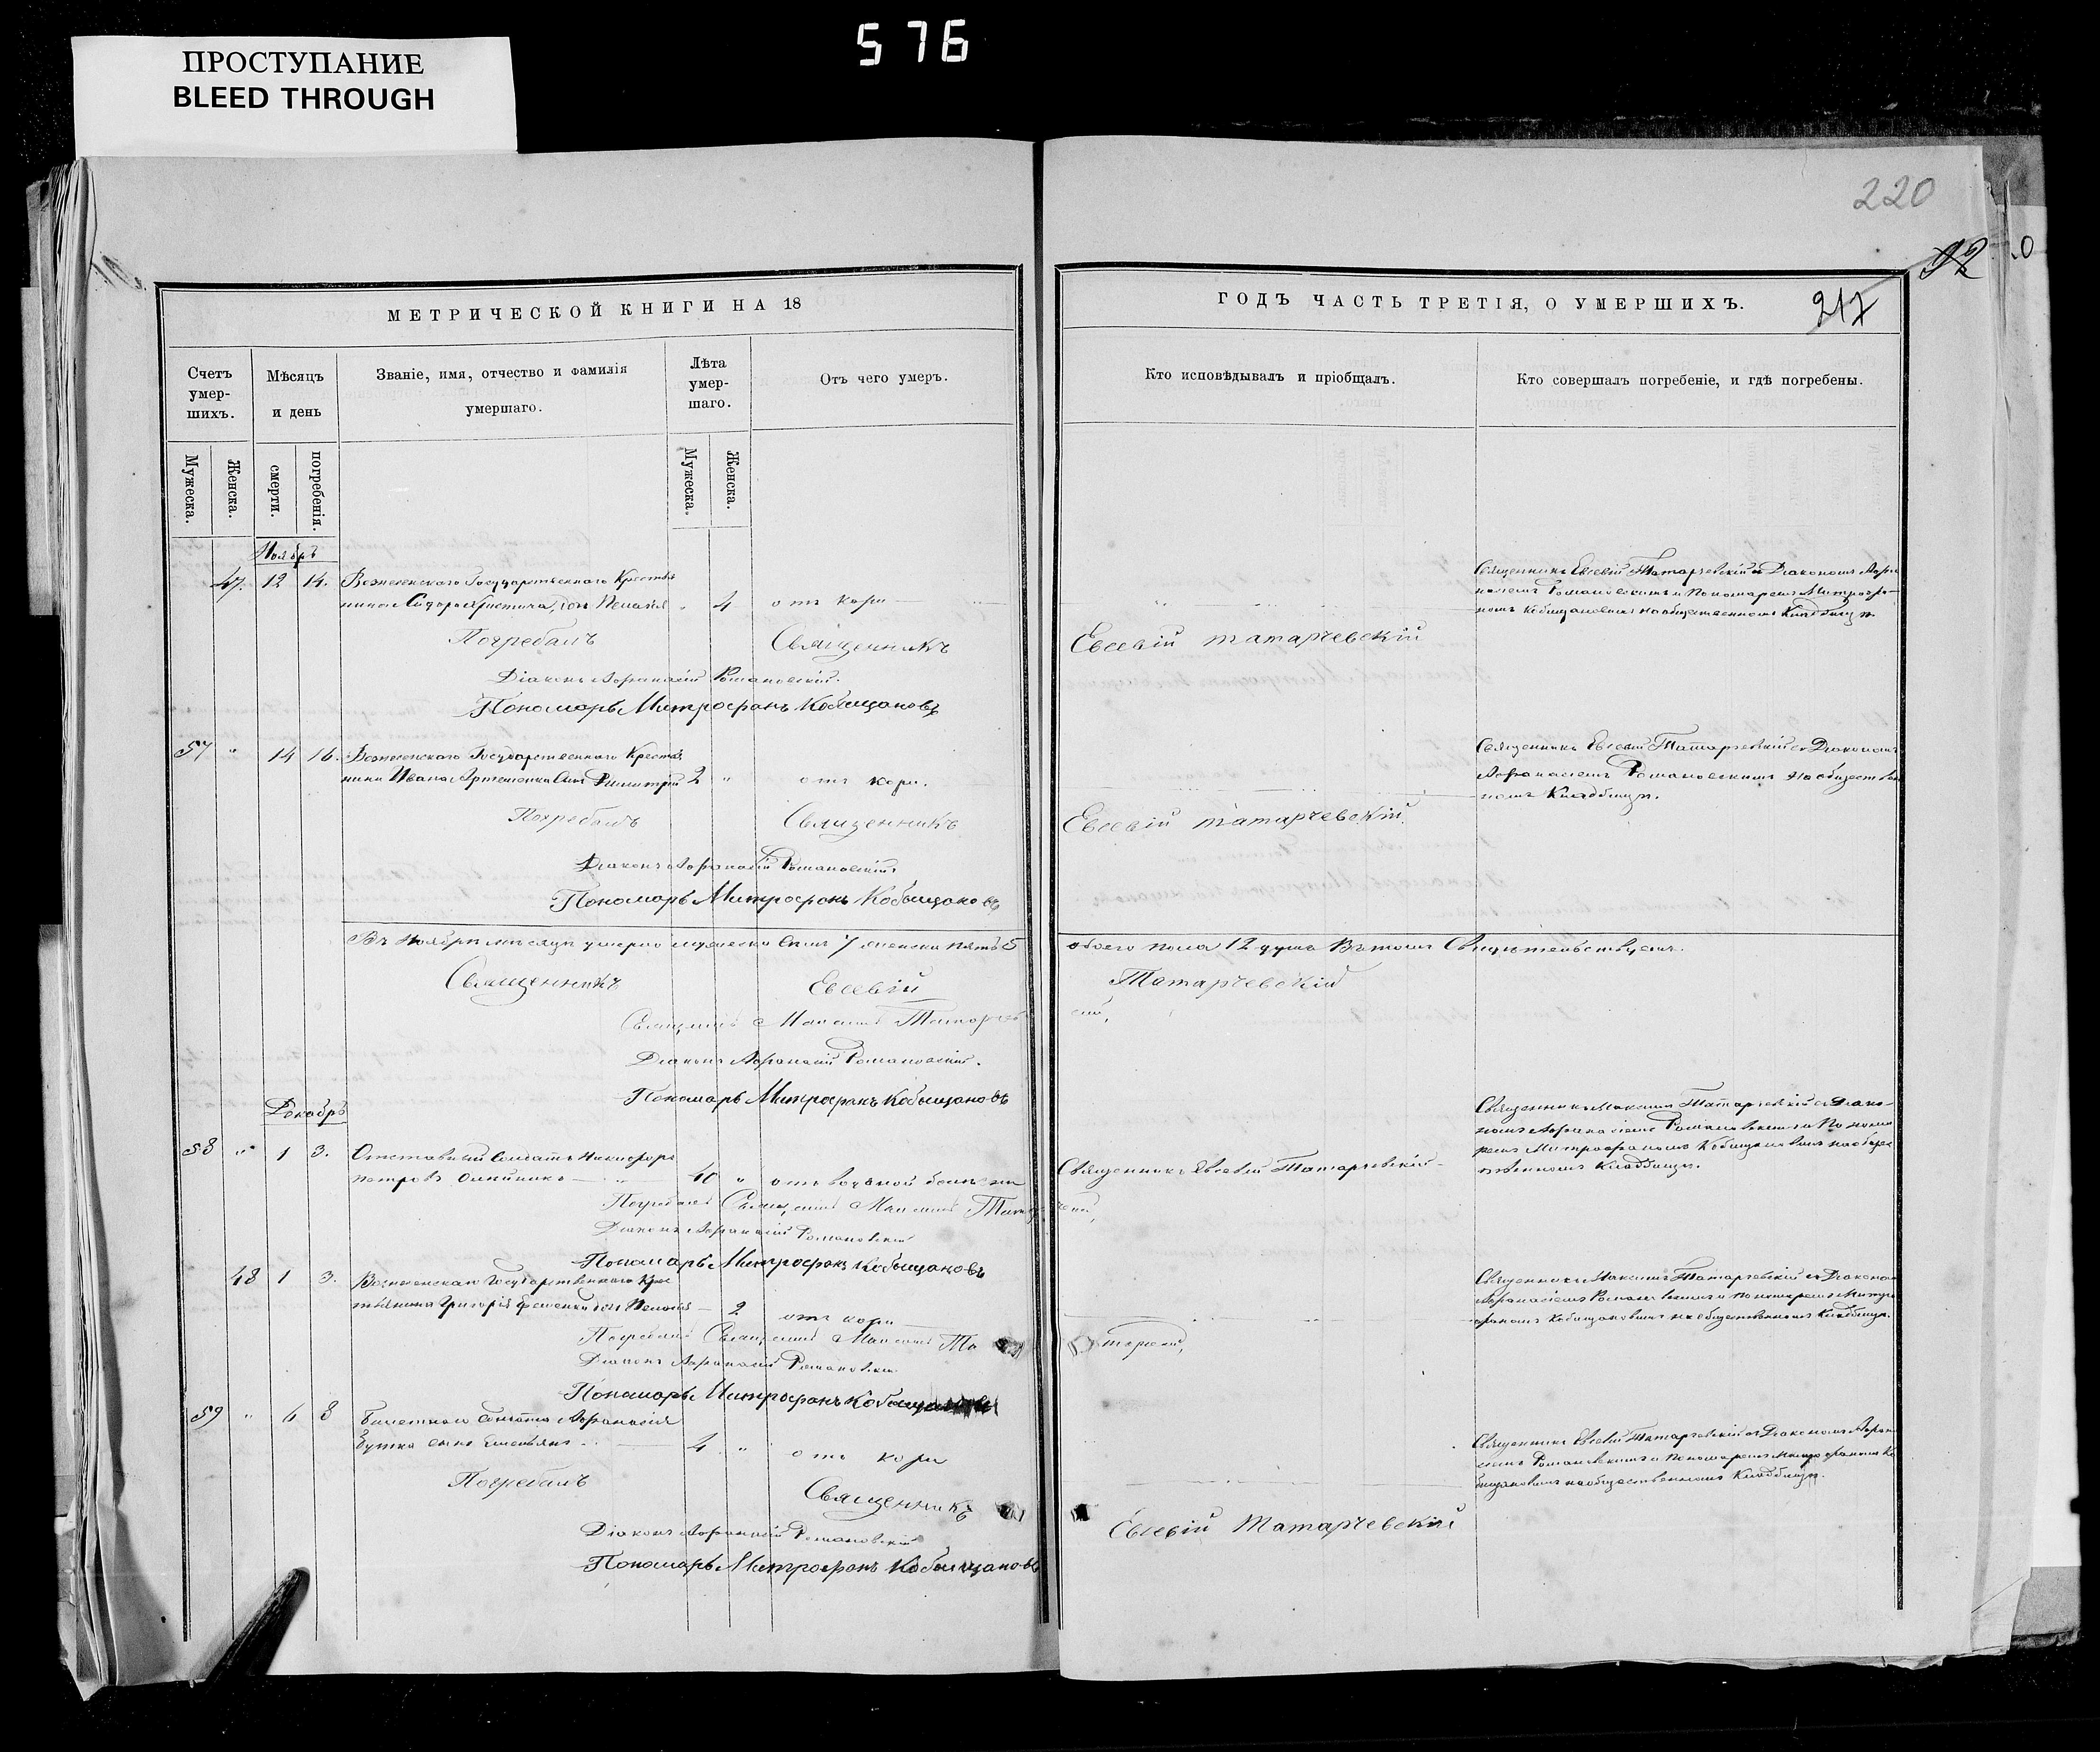 576
ПРОСТУПАНИЕ
BLEED THROUGH
220
92
217
МЕТРИЧЕСКОЙ КНИГИ НА 18
ГОДЪ ЧАСТЬ ТРЕТІЯ, О УМЕРШИХЪ.
Счетъ умер-шихъ.
Мѣсяцъ и день
Званіе, имя, отчество и фамилія умершаго.
Лѣта умер-шаго.
Отъ чего умеръ.
Кто исповѣдывалъ и пріобщалъ.
Кто совершалъ погребеніе, и гдѣ погребены.
Мужеска.
Женска.
смерти.
погребенія.
Мужеска.
Женска.
Ноябрь
47. 12 14. Вознесенскаго Государственнаго Крестья
нина Сидора дочь Пелагія " 4 отъ кори
Священникъ Евсевій Татарчевскій съ Діакономъ Афа
насіемъ Романовскимъ и Пономаремъ Митрофа-
номъ Кобищановымъ на общественномъ Кладбищѣ.
Погребалъ Священникъ Евсевій Татарчевскій
Діаконъ Афанасій Романовскій.
Пономарь Митрофанъ Кобищановъ
57 " 14 16. Вознесенскаго Государственнаго Крестья
нина Ивана Артеменка Сынъ Димитрій 2 " отъ кори.
Священникъ Евсевій Татарчевскій съ Діакономъ
Афанасіемъ Романовскимъ на обществен
номъ Кладбищѣ.
Погребалъ Священникъ Евсевій Татарчевскій.
Діаконъ Афанасій Романовскій
Пономарь Митрофанъ Кобыщановъ
Въ Ноябрѣ мѣсяцѣ умерло мужеска Семь 7 женска пять 5 обоего пола 12 душъ Въ томъ Свидѣтельствуемъ.
Священникъ Евсевій Татарчевскій
Священникъ Татарчевскій,
Діаконъ Афанасій Романовскій.
Пономарь Митрофанъ Кобыщановъ
Декабрь
58 " 1 3. Отставный Солдатъ Никифоръ
Петровъ Олейникъ 40 " отъ болѣзни
Священникъ Евсевій Татарчевскій
Священникъ Татарчевскій съ Діако-
номъ Афанасіемъ Романовскимъ и Понома
ремъ Митрофаномъ Кобищановымъ на обще
ственномъ Кладбищѣ.
Погребалъ
Діаконъ Афанасій Романовскій
Пономарь Митрофанъ Кобыщановъ
48 1 3. Вознесенскаго Государственнаго Крес
тьянина Григорія дочь Пелагія 2 отъ кори
Священникъ Татарчевскій съ Діакономъ
Афанасіемъ Романовскимъ и Пономаремъ Митро
фаномъ Кобищановымъ на общественномъ Кладбищѣ.
Погребалъ
Діаконъ Афанасій Романовскій
Пономарь Митрофанъ
59 " 6 8 Билетнаго Солдата Афанасія
сынъ Емельянъ 4 " отъ кори
Священникъ Евсевій Татарчевскій съ Діакономъ Афана
сіемъ Романовскимъ и Пономаремъ Митрофаномъ Ко
бищановымъ на общественномъ Кладбищѣ.
Погребалъ Священникъ Евсевій Татарчевскій
Діаконъ Афанасій Романовскій
Пономарь Митрофанъ Кобыщановъ